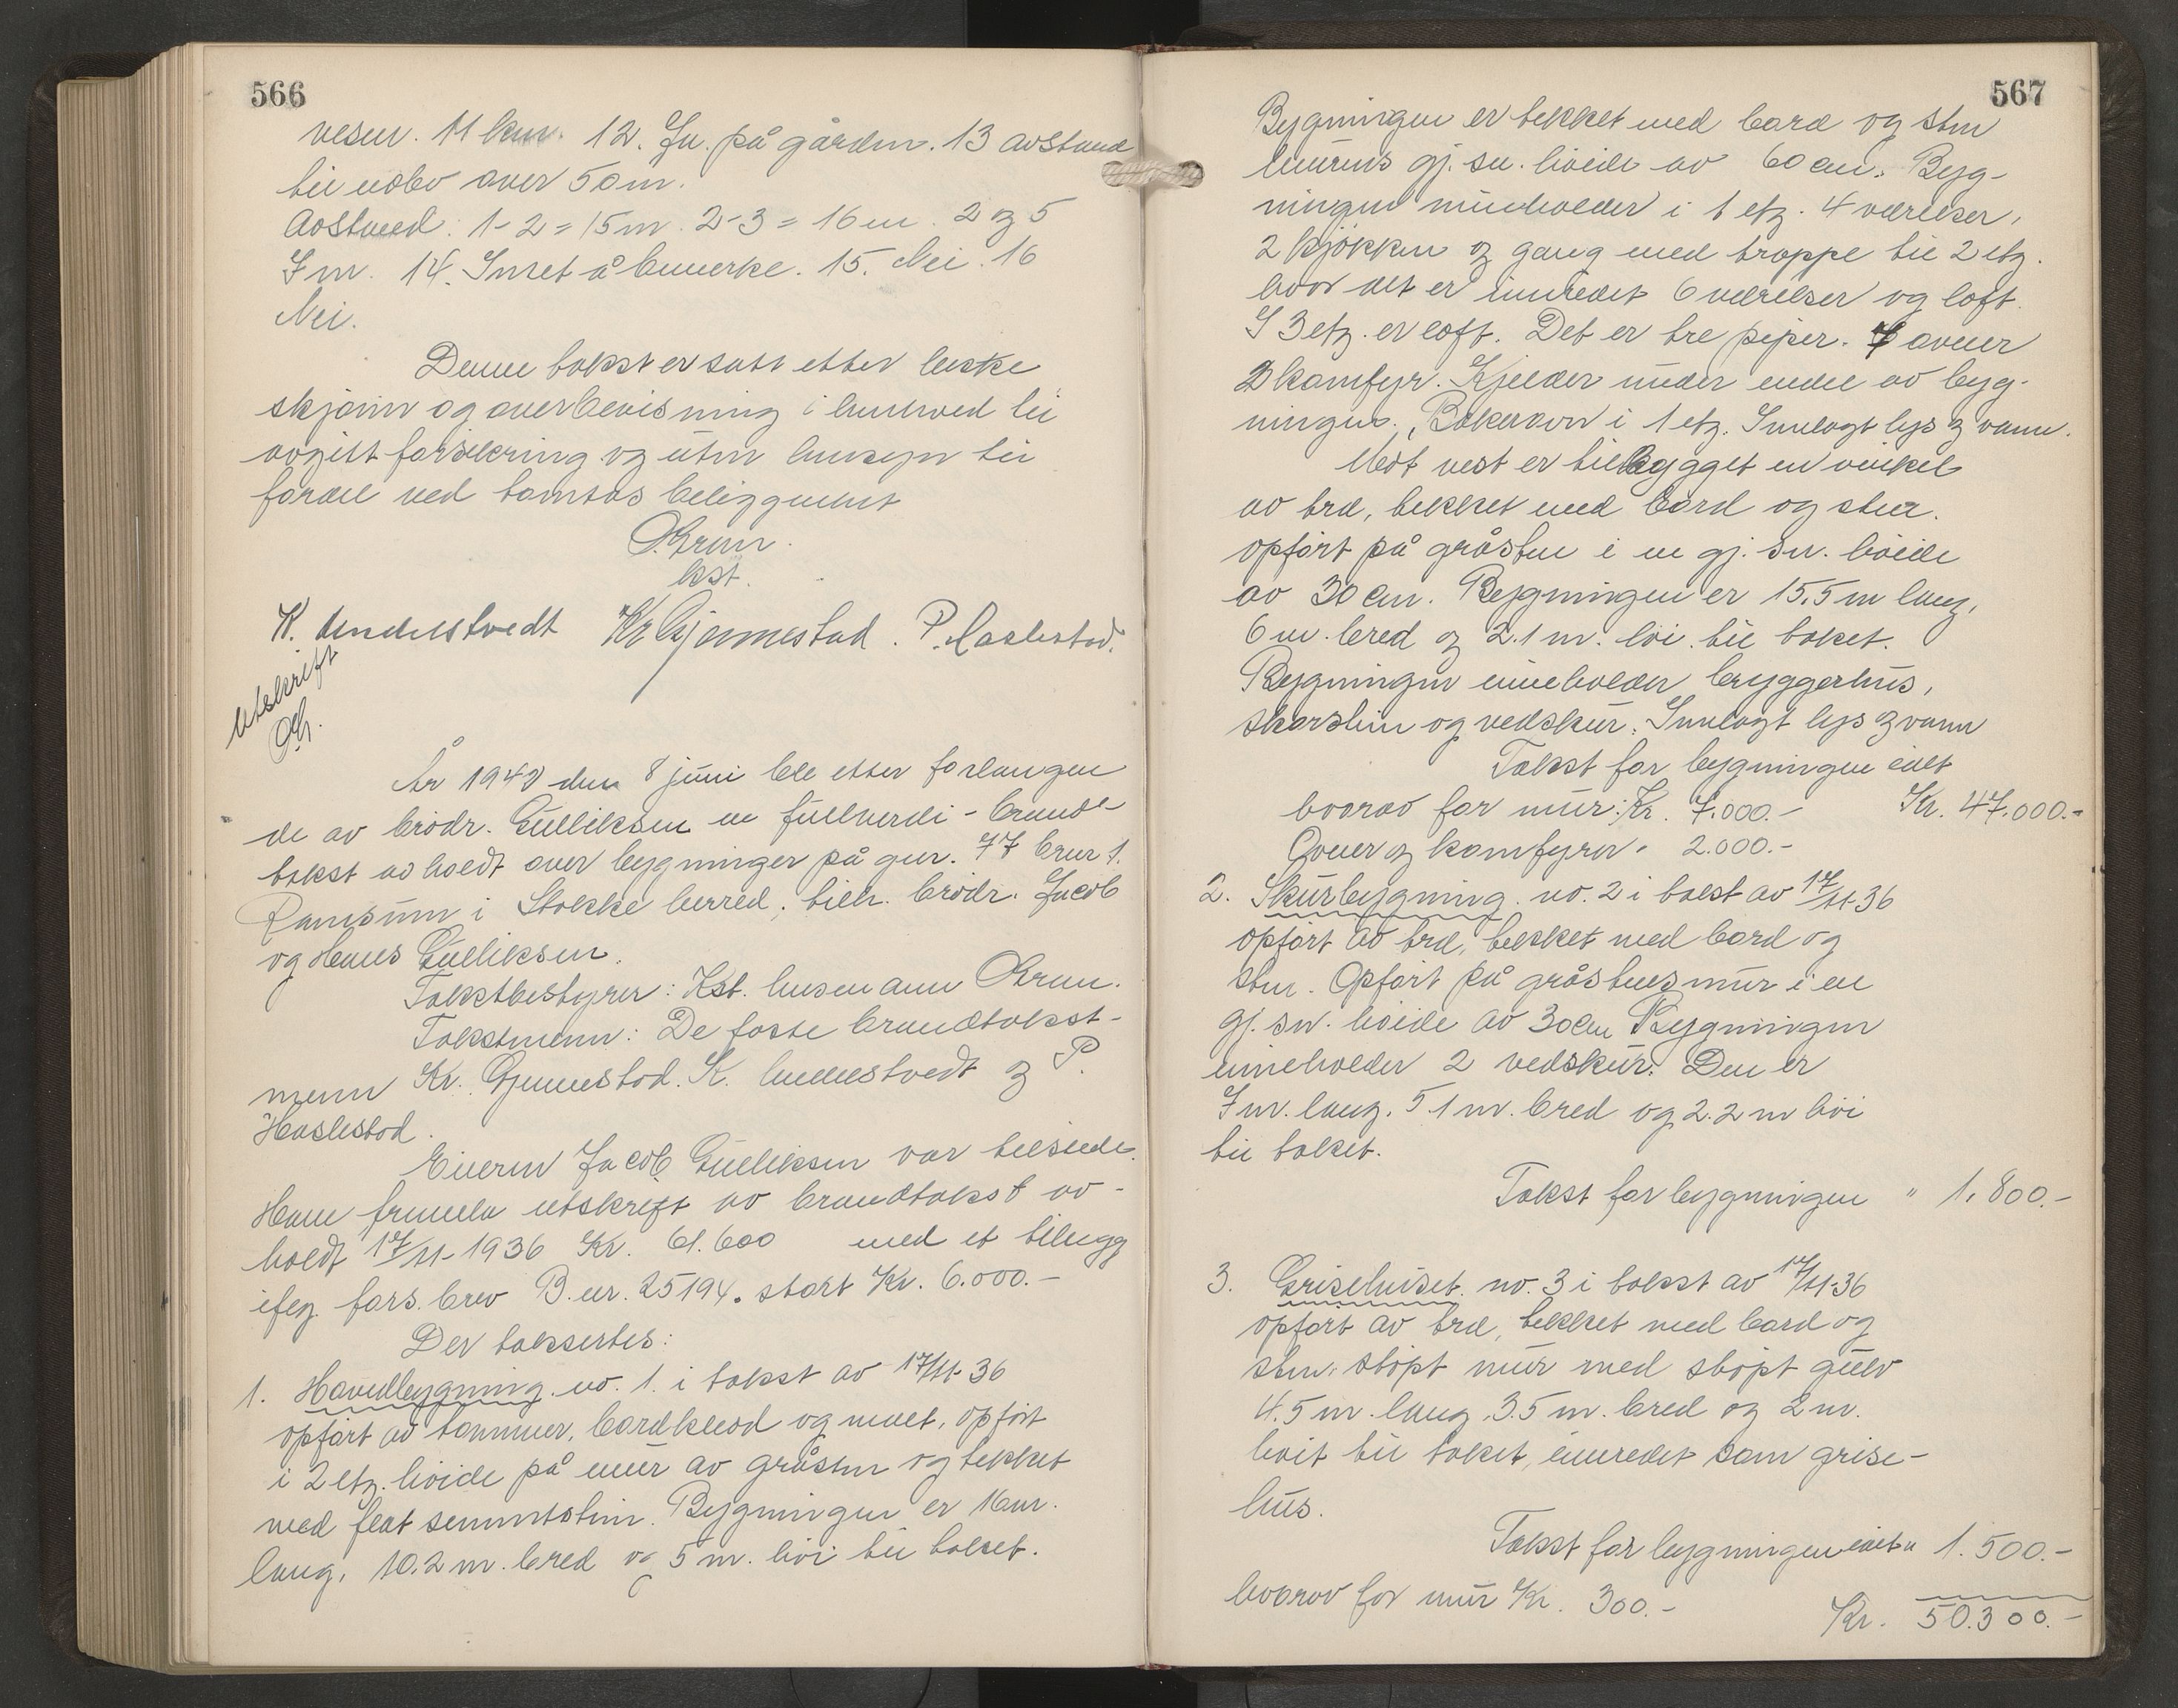 566
vesen. 11 km. 12. Ja. på gården. 13 avstand
til nabo over 50m.
Avstand: 1-2 = 15m. 2-3 = 16m. 2 og 5
7 m. 14. Intet å bemerke. 15. Nei. 16
Nei.
Denne takst er satt etter beste
skjønn og overbevisning i henhold til
avgitt forsikring og uten hensyn til
fordel ved tomtas beliggenhet
O. Gran.
lst.
K. Undestvedt Kr Gjennestad. P. Haslestad.
Utskrift
OG.
År 1940 den 8 juni ble etter forlangen
de av brødr. Gulliksen en fullverdi-brand-
takst avholdt over bygninger på gnr. 77 bnr 1.
Ramsum i Stokke herred, tilh. brødr. Jacob
og Hans Gulliksen.
Takstbestyrer: Kst. lensmann Gran.
Takstmenn: De faste brandtakst-
menn Kr. Gjennestad. K. Undestvedt og P.
Haslestad.
Eieren Jacob Gulliksen var tilstede.
Han fremla utskrift av brandtakst av-
holdt 17/11-1936 Kr. 61.600 med et tillegg
ifølg. fors. brev B. nr. 25194. stort Kr. 6.000.-
Der taksertes:
1. Hovedbygning. no. 1. i takst av 17/11-36
opført av tømmer, bordkledd og malt, opført
i 2 etg. høide på mur av gråsten og tekket
med flat sementsten. Bygningen er 16m.
lang, 10.2 m. bred og 5 m. høi til taket.
567
Bygningen er tekket med bord og sten
murens gj. sn. høide av 60 cm. Byg-
ningen inneholder i 1 etg. 4 værelser,
2 kjøkken og gang med trappe til 2 etg.
hvor det er innredet 6 værelser og loft.
I 3 etg. er loft. Det er tre piper. 7 ovner
2 komfyr. Kjelder under endel av byg-
ningen. Bakerovn i 1 etg. Innlagt lys og vann.
Mot vest er tilbygget en vinkel
av tre, tekket med bord og sten.
opført på gråsten i en gj. sn. høide
av 30 cm. Bygningen er 15.5 m lang,
6 m. bred og 2.1 m. høi til taket.
Bygningen inneholder bryggerhus,
skorsten og vedskur. Innlagt lys og vann
Takst for bygningen ialt
hvorav for mur: Kr. 7.000.- Kr. 47.000.-
Ovner og komfyrer " 2.000.-
2. Skurbygning. no. 2 i takst av 17/11-36
opført av tre, tekket med bord og
sten. Opført på gråstensmur i en
gj. sn. høide av 30 cm Bygningen
inneholder 2 vedskur. Den er
7 m. lang. 5.1 m. bred og 2.2 m høi
til taket.
Takst for bygningen " 1.800.-
3. Grisehuset. no. 3 i takst av 17/11-36
opført av tre, tekket med bord og
sten. støpt mur med støpt gulv
4.5 m. lang, 3.5 m. bred og 2 m.
høit til taket, innredet som grise-
hus.
Takst for bygningen ialt " 1.500.-
hvorav for mur Kr. 300.-
Kr. 50.300.-